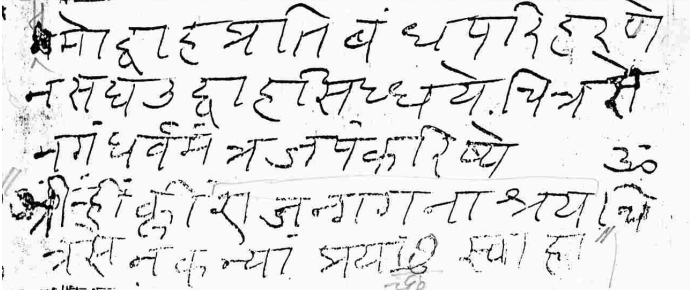 ममोद्वाहप्रतिबंधपरिहरणे
नसद्यउद्वाहसिध्धये.चित्रसे
नगंधर्वमंत्रजपंकरिष्ये ॐ
श्रींह्रींक्लींराजन्गगनाश्रय।चि
त्रसेनकन्यां प्रयछ स्वाहा